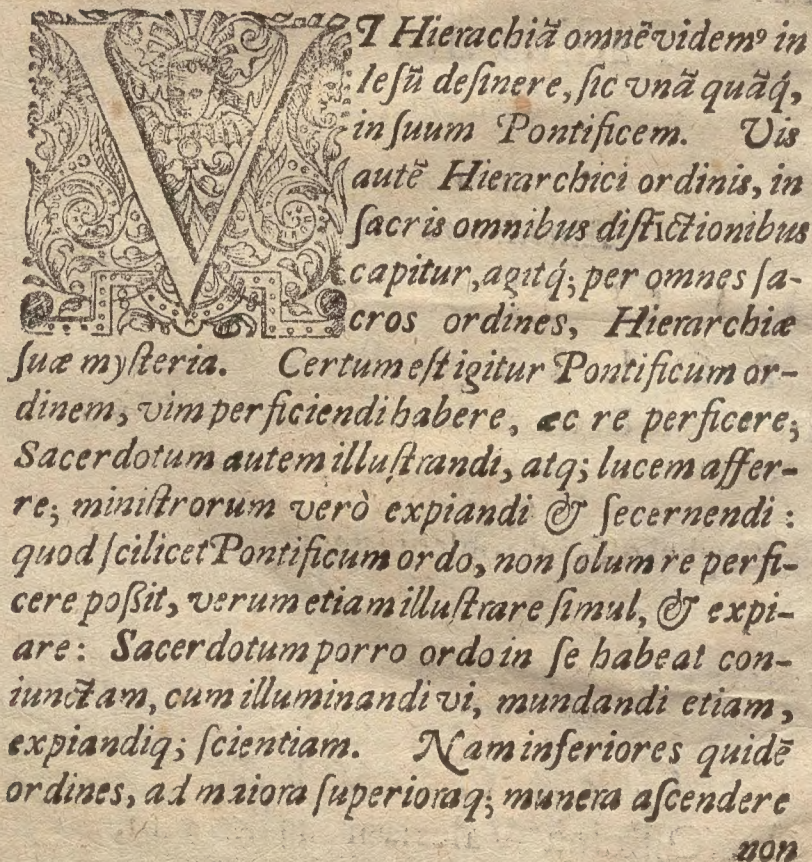 VT Hierachiā omnē videmꝰ in
Ieſū deſinere, ſic vnā quāq́,
in ſuum Pontificem. Vis
autē Hierarchici ordinis, in
ſacris omnibus diſtictionibus
capitur, agitq́; per omnes ſa-
cros ordines, Hierarchiæ
ſuæ myſteria. Certum eſt igitur Pontificum or-
dinem, vim perficiendi habere, ac re perficere;
Sacerdotum autem illuſtrandi, atq; lucem affer-
re; miniſtrorum verò expiandi & ſecernendi:
quod ſcilicet Pontificum ordo, non ſolum re perfi-
cere poßit, verum etiam illuſtrare ſimul, & expi-
are: Sacerdotum porro ordo in ſe habeat con-
iunctam, cum illuminandi vi, mundandi etiam,
expiandiq; ſcientiam. Nam inferiores quidē
ordines, ad maiora ſuperioraq; munera aſcendere
non